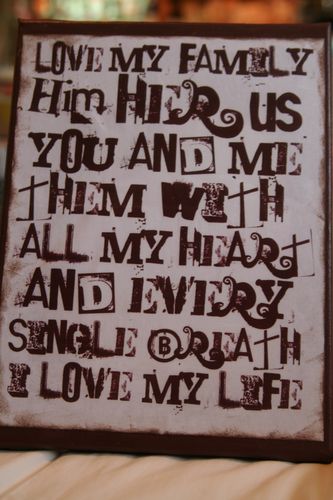 LOVE MY FAMILY
Him HER US
YOU AND ME
THEM WITH
ALL MY HEART
AND EVERY
SINGLE BREATH
I LOVE MY LIFE